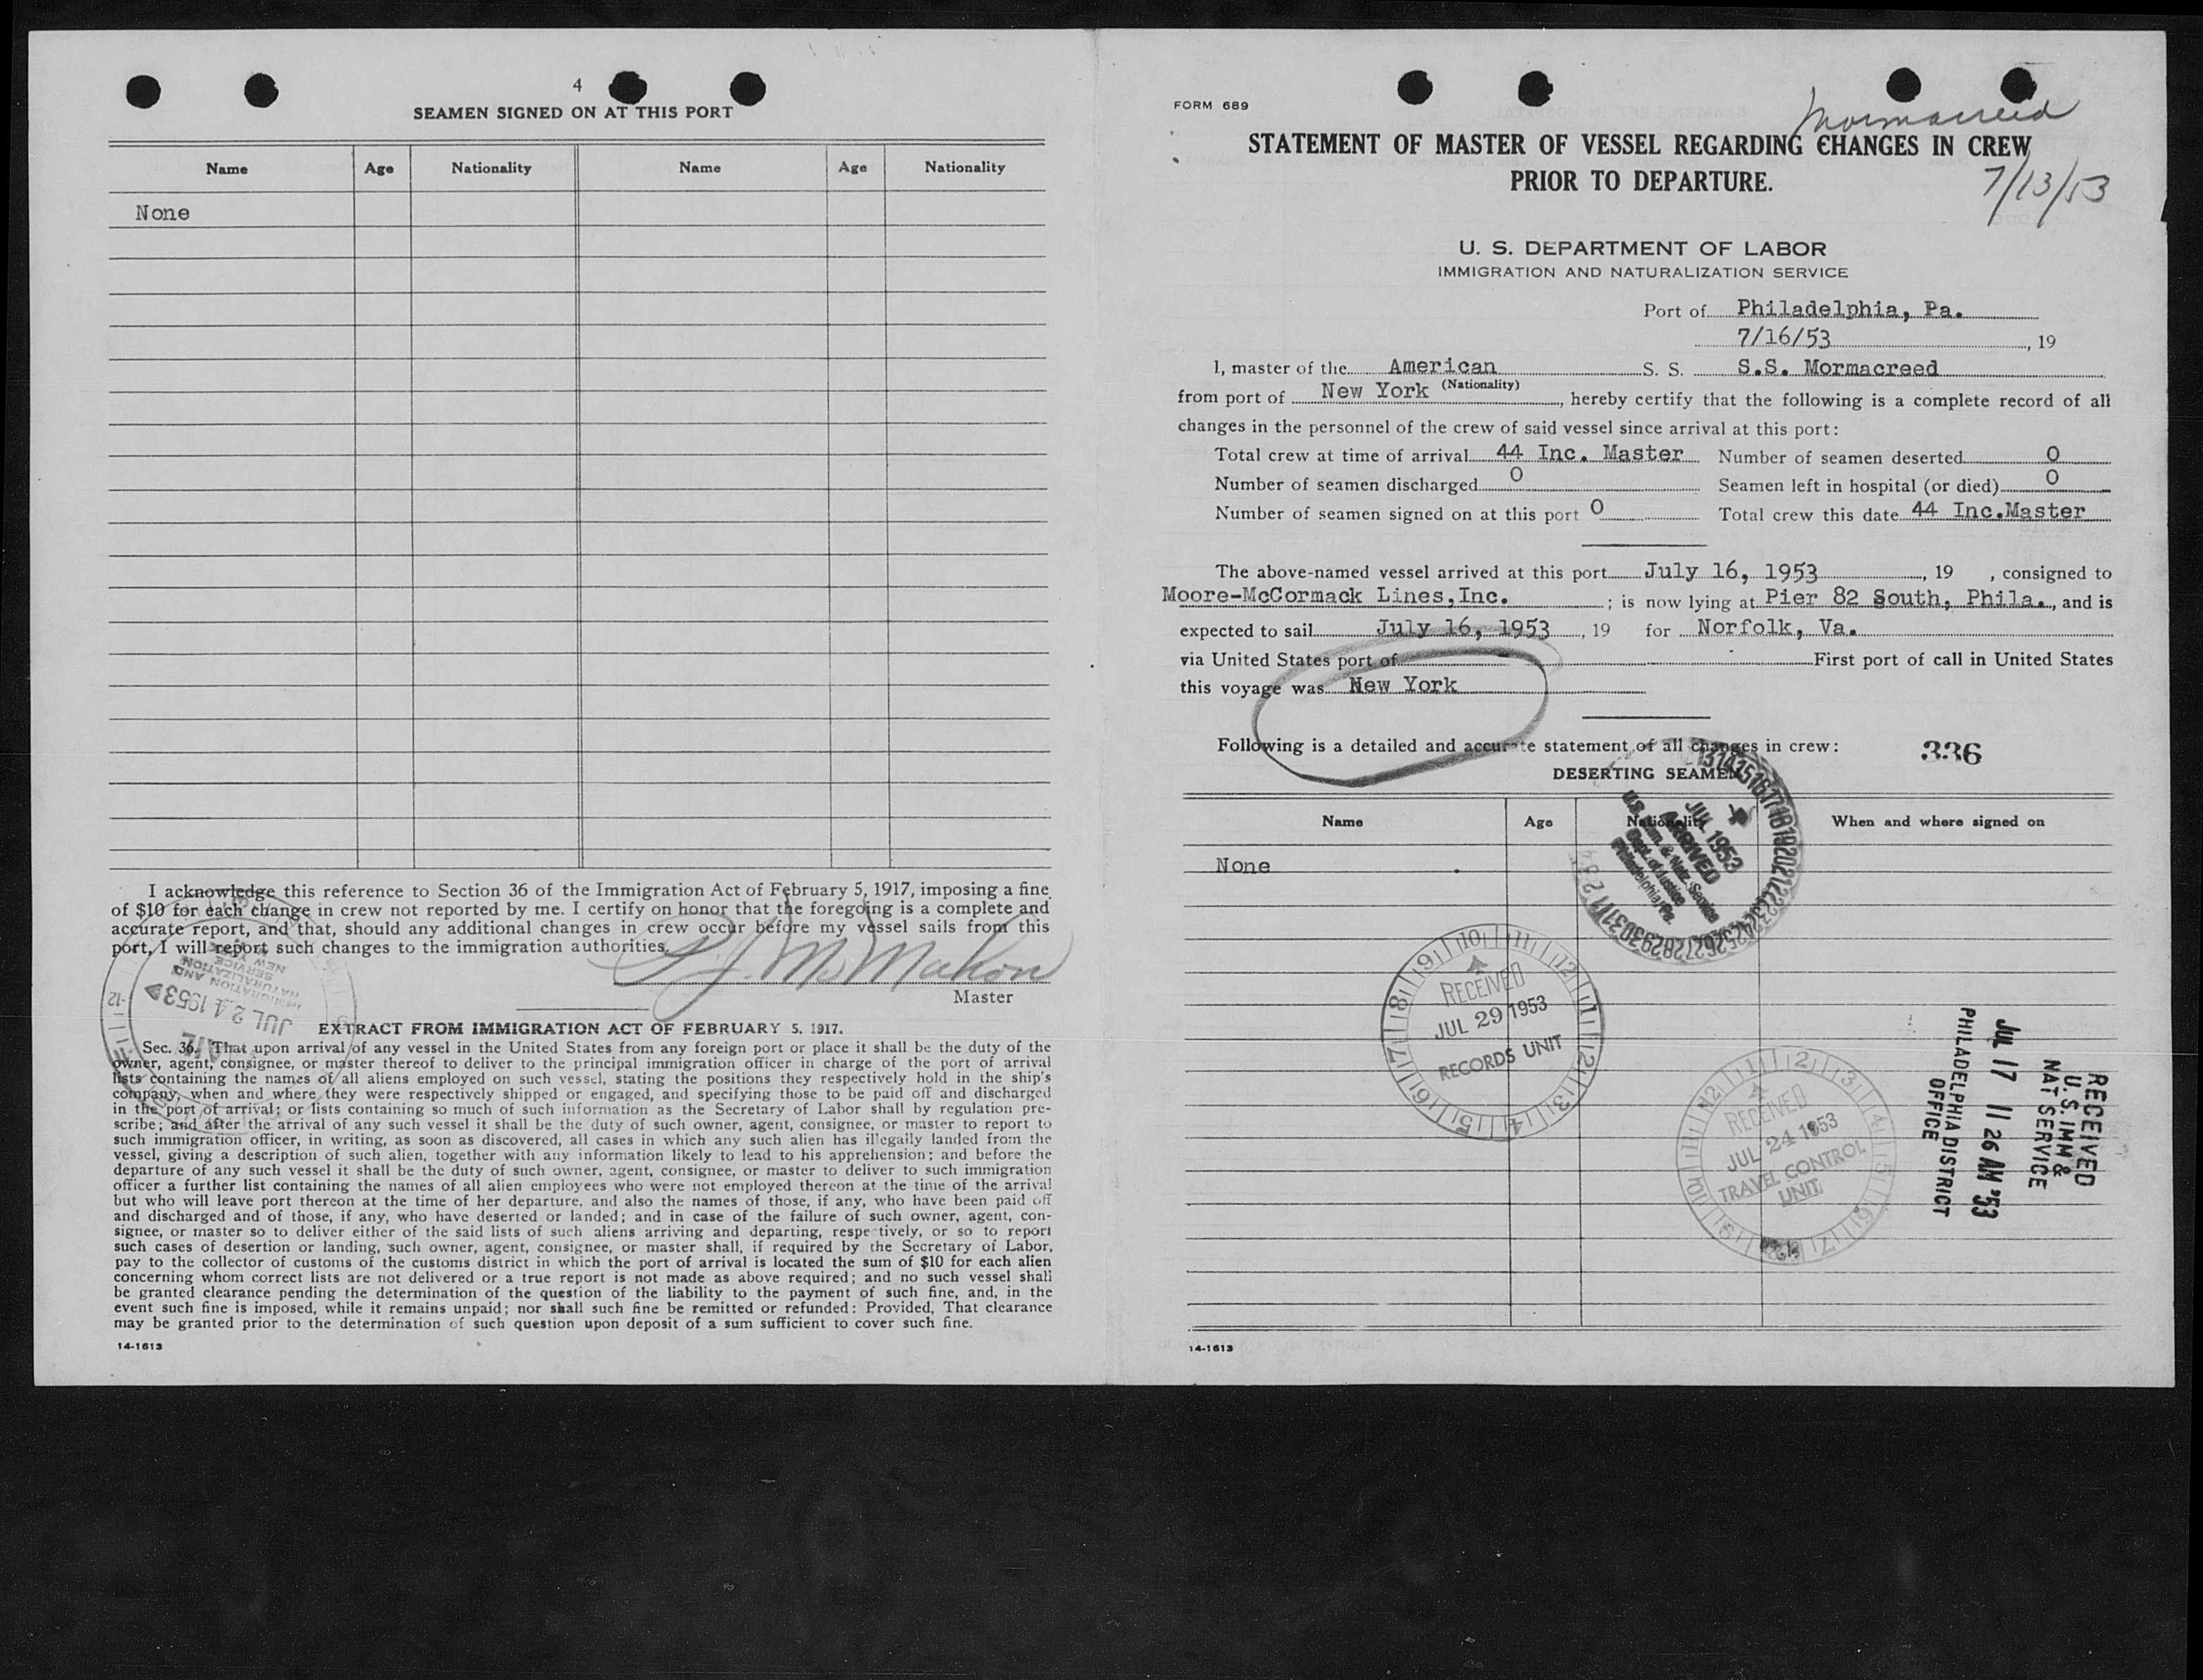 4
SEAMEN SIGNED ON AT THIS PORT
Name Age Nationality Name Age Nationality
None
I acknowledge this reference to Section 36 of the Immigration Act of February 5, 1917, imposing a fine
of $10 for each change in crew not reported by me. I certify on honor that the foregoing is a complete and
accurate report, and that, should any additional changes in crew occur before my vessel sails from this
port, I will report such changes to the immigration authorities.
McMahon
Master
IMMIGRATION AND
NATURALIZATION
SERVICE
NEW YORK
JUL 24 1953
EXTRACT FROM IMMIGRATION ACT OF FEBRUARY 5, 1917.
Sec. 36. That upon arrival of any vessel in the United States from any foreign port or place it shall be the duty of the
owner, agent, consignee, or master thereof to deliver to the principal immigration officer in charge of the port of arrival
lists containing the names of all aliens employed on such vessel, stating the positions they respectively hold in the ship's
company, when and where they were respectively shipped or engaged, and specifying those to be paid off and discharged
in the port of arrival; or lists containing so much of such information as the Secretary of Labor shall by regulation pre-
scribe; and after the arrival of any such vessel it shall be the duty of such owner, agent, consignee, or master to report to
such immigration officer, in writing, as soon as discovered, all cases in which any such alien has illegally landed from the
vessel, giving a description of such alien, together with any information likely to lead to his apprehension; and before the
departure of any such vessel it shall be the duty of such owner, agent, consignee, or master to deliver to such immigration
officer a further list containing the names of all alien employees who were not employed thereon at the time of the arrival
but who will leave port thereon at the time of her departure, and also the names of those, if any, who have been paid off
and discharged and of those, if any, who have deserted or landed; and in case of the failure of such owner, agent, con-
signee, or master so to deliver either of the said lists of such aliens arriving and departing, respectively, or so to report
such cases of desertion or landing, such owner, agent, consignee, or master shall, if required by the Secretary of Labor,
pay to the collector of customs of the customs district in which the port of arrival is located the sum of $10 for each alien
concerning whom correct lists are not delivered or a true report is not made as above required; and no such vessel shall
be granted clearance pending the determination of the question of the liability to the payment of such fine, and, in the
event such fine is imposed, while it remains unpaid; nor shall such fine be remitted or refunded: Provided, That clearance
may be granted prior to the determination of such question upon deposit of a sum sufficient to cover such fine.
14-1613
FORM 689
Mormacreed
STATEMENT OF MASTER OF VESSEL REGARDING CHANGES IN CREW
PRIOR TO DEPARTURE.
7/13/53
U. S. DEPARTMENT OF LABOR
IMMIGRATION AND NATURALIZATION SERVICE
Port of Philadelphia, Pa.
7/16/53, 19
I, master of the American S. S. S.S. Mormacreed
(Nationality)
from port of New York, hereby certify that the following is a complete record of all
changes in the personnel of the crew of said vessel since arrival at this port:
Total crew at time of arrival 44 Inc. Master Number of seamen deserted 0
Number of seamen discharged 0 Seamen left in hospital (or died) 0
Number of seamen signed on at this port 0 Total crew this date 44 Inc.Master
The above-named vessel arrived at this port July 16, 1953, 19 , consigned to
Moore-McCormack Lines,Inc. ; is now lying at Pier 82 South, Phila., and is
expected to sail July 16, 1953, 19 for Norfolk, Va.
via United States port of First port of call in United States
this voyage was New York
Following is a detailed and accurate statement of all changes in crew:
336
DESERTING SEAMEN
Name Age Nationality When and where signed on
None
JUL 1953
ARRIVED
U.S. Imm. & Natz. Service
Dept. of Justice
Philadelphia, Pa.
RECEIVED
JUL 29 1953
RECORDS UNIT
RECEIVED
JUL 24 1953
TRAVEL CONTROL
UNIT
RECEIVED
U.S. IMM &
NAT SERVICE
JUL 17 11 26 AM '53
PHILADELPHIA DISTRICT
OFFICE
14-1613